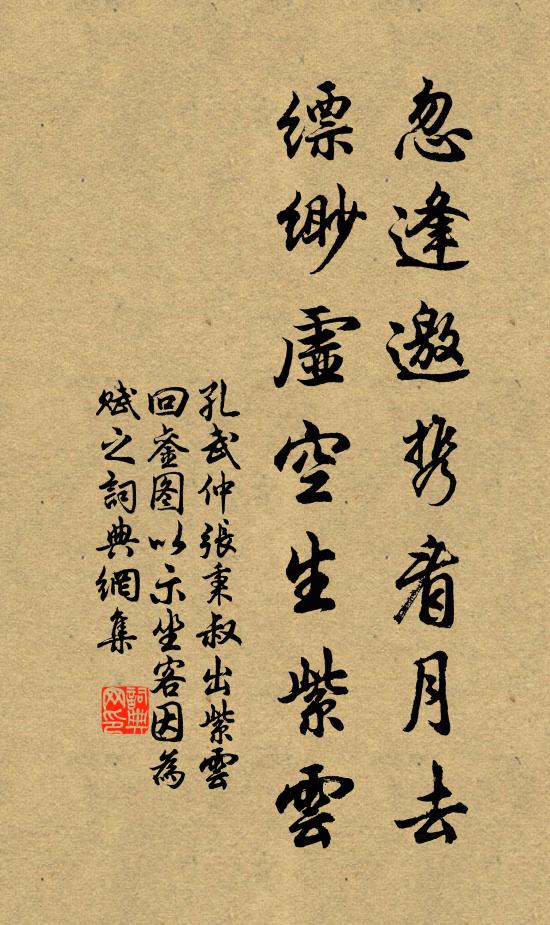 忽逢邀携看月去
缥缈虚空生紫雲
孔武仲張秉叔出紫雲
回銮图以示坐客因為
赋之詞典網集
詞典网印